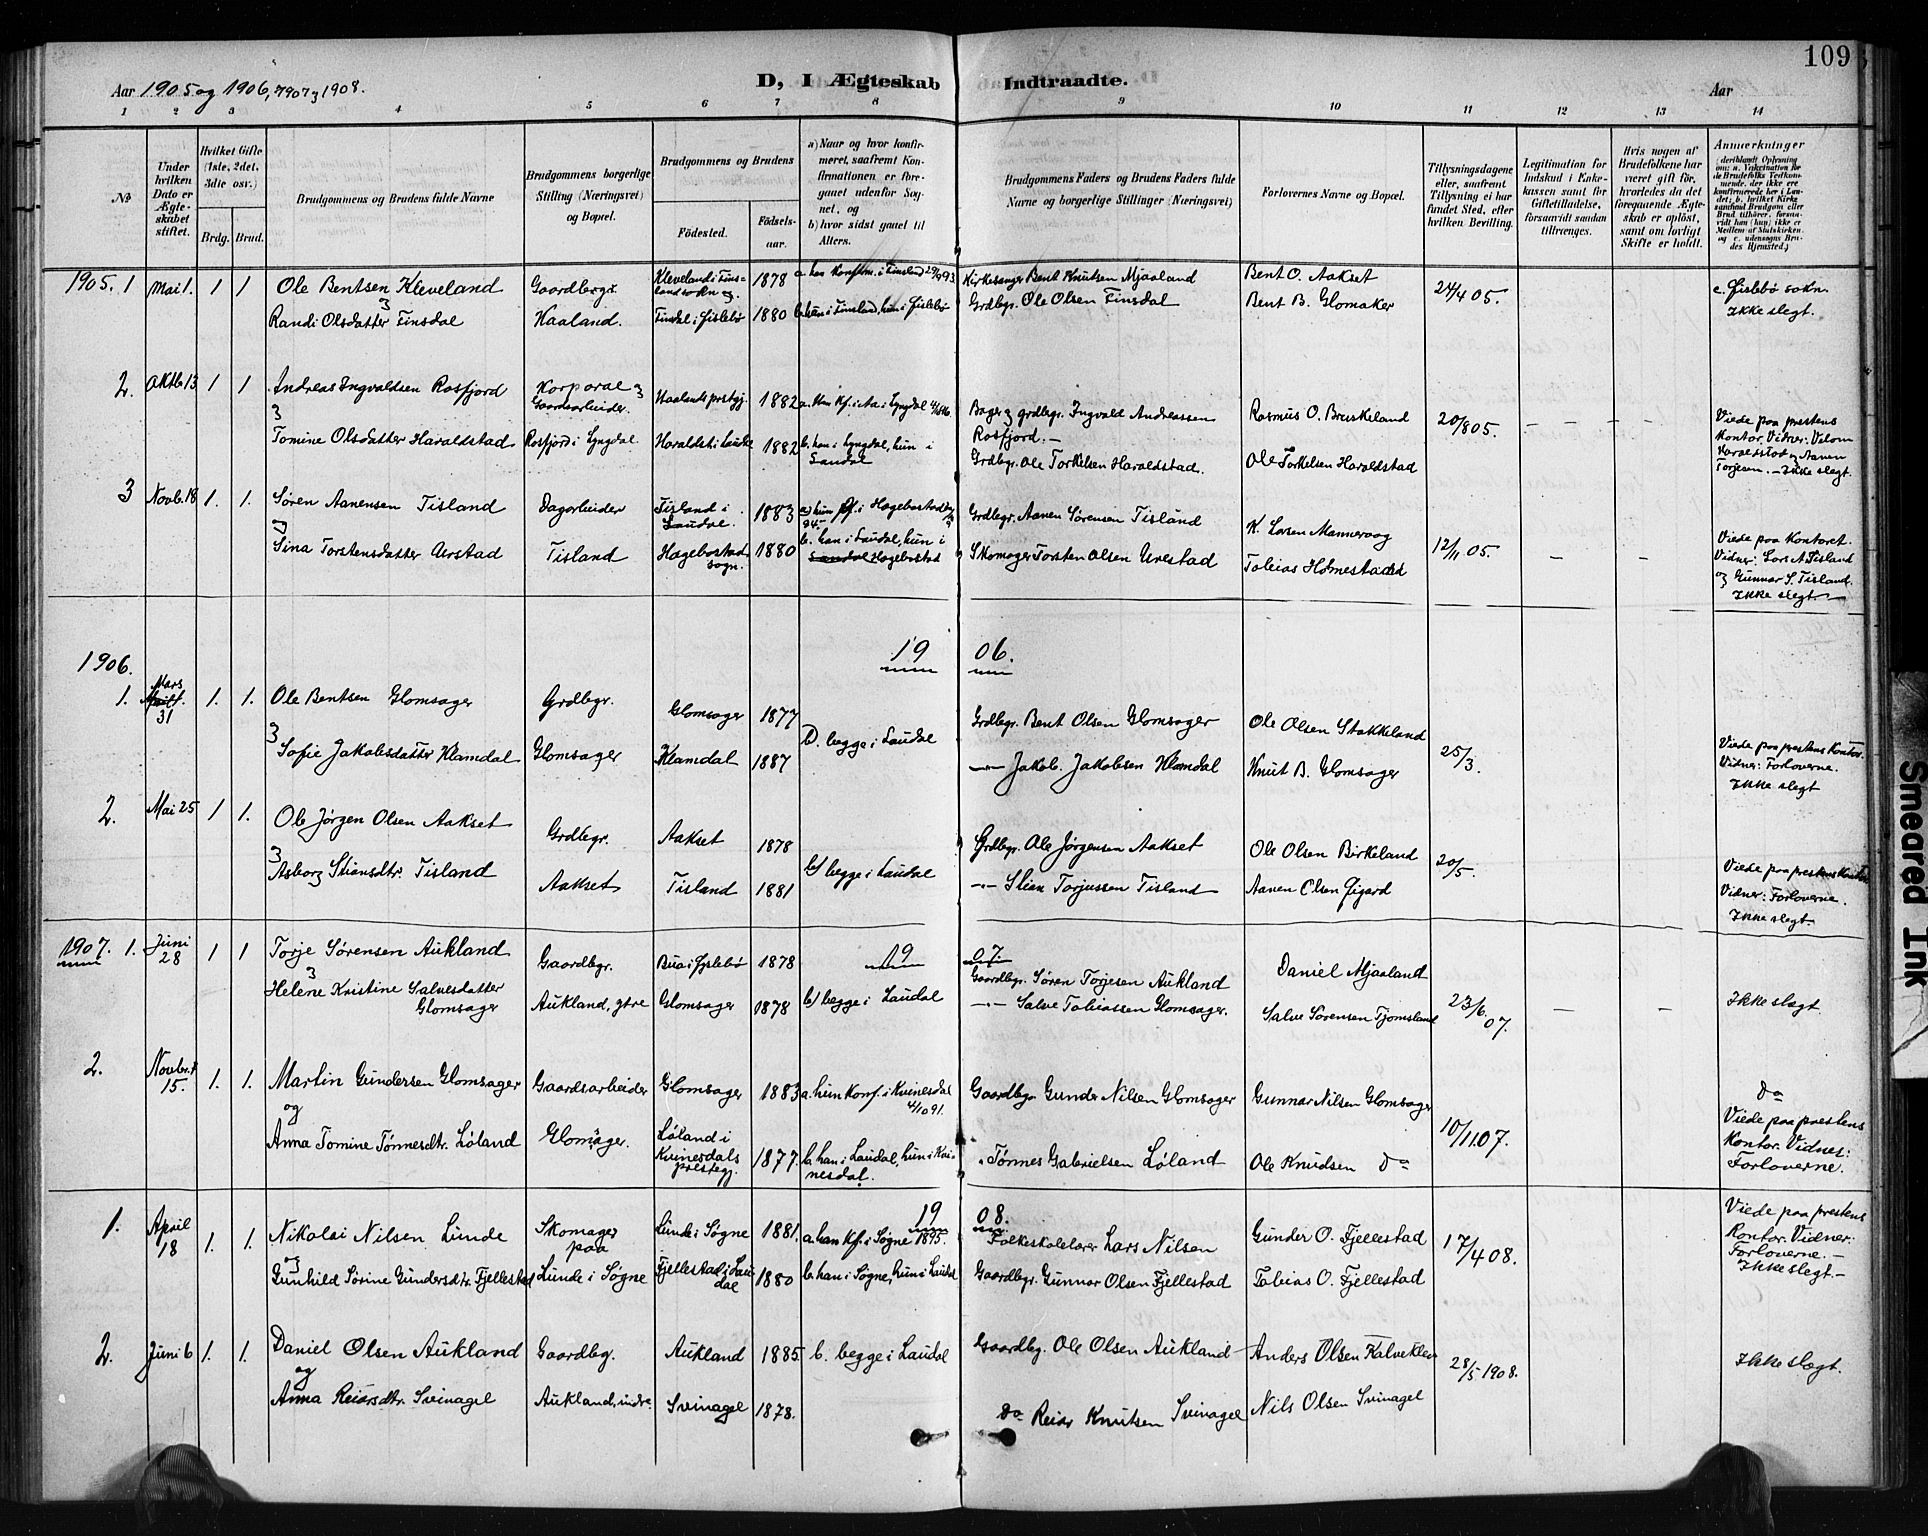 109
Aar 1905 og 1906, 1907 & 1908.
D, I Ægteskab Indtraadte.
Aar
1 2 3 4 5 6 7 8 9 10 11 12 13 14
No
Under hvilken Dato er Ægteskabet stiftet.
Hvilket Gifte (1ste, 2det, 3die osv.)
Brdg. Brud.
Brudgommens og Brudens fulde Navne
Brudgommens borgerlige Stilling (Næringsvei) og Bopæl.
Brudgommens og Brudens
Fødested. Fødselsaar.
a) Naar og hvor konfirmeret, saafremt Konfirmationen er foregaaet udenfor Sognet, og
b) hvor sidst gaaet til Alters.
Brudgommens Faders og Brudens Faders fulde Navne og borgerlige Stillinger (Næringsvei)
Forlovernes Navne og Bopæl.
Tillysningsdagene eller, saafremt Tillysning ei har fundet Sted, efter hvilken Bevilling.
Legitimation for Indskud i Enkekassen samt for Giftetilladelse, forsaavidt saadan tiltrænges.
Hvis nogen af Brudefolkene har været gift før, hvorledes da det foregaaende Ægteskab er opløst, samt om lovligt Skifte er holdt.
Anmerkninger
1905. 1 Mai 1. 1 1 Ole Bentsen Kleveland Gaardbrgr. Kleveland i Finsland sokn 1878 a. han konfirm. i Finsland Kirkesanger Bent Knutsen Mjaaland Bent O. Aakset 24/4 05. c. Øislebø sokn.
& Randi Olsdatter Finsdal Haaland. Finsdal i Øislebø 1880 b. han i Finsland, hun i Øislebø Grdbgr. Ole Olsen Finsdal Bent B. Glomsaker Ikke slegt.
2. Oktb 13 1 1 Andreas Ingvaldsen Rosfjord Korporal & Gaardsarbeider. Haalands prstgj. 1882 a. Han kf. i Lyngdal Bager & grdbgr. Ingvald Andreassen Rosfjord.— Rasmus O. Bruskeland 20/8 05. – – – – Viede paa prestens
& Tomine Olsdatter Haraldstad Rosfjord i Lyngdal Haraldst. i Laudal 1882 b. han i Lyngdal, hun i Laudal Grdbgr. Ole Torkelsen Haraldstad. Ole Torkelsen Haraldstad Kontor. Vidner:
Haraldstad og Aanen
Torjesen. – Ikke slegt.
3 Novb. 18 1. 1. Søren Aanensen Tisland Dagarbeider Tisland i Laudal. 1883 a) hun kf. i Hægebostad Grdbgr. Aanen Sørensen Tisland K. Larsen Mannevaag 12/11 05. – – Viede paa Kontoret.
& Sina Torstensdatter Aerstad Tisland Hægebostad sogn. 1880 b. han i Laudal, hun i Hægebostad Skomager Torsten Olsen Urestad Tobias Holmestad Vidner: Lars A. Tisland
og Gunnar S. Tisland.
Ikke slegt. —
1906. 19 06.
1. Mars 31 1. 1. Ole Bentsen Glomsager Grdbgr. Glomsager 1877 b. begge i Laudal Grdbgr. Bent Olsen Glomsager Ole Olsen Stakkeland 25/3. Viede paa prestens Kontor.
& Sofie Jakobsdatter Klamdal Glomsager Klamdal 1887 —"— Jakob Jakobsen Klamdal Knut B. Glomsager Vidner: Forloverne.
Ikke slegt
2. Mai 25 1 1. Ole Jørgen Olsen Aakset Grdbgr. Aakset 1878 b) begge i Laudal Grdbgr. Ole Jørgensen Aakset Ole Olsen Birkeland 20/5. Viede paa prestens Kontor
& Asborg Stiansdtr. Tisland Aakset Tisland 1881 —"— Stian Torjussen Tisland Aanen Olsen Øigard Vidner: Forloverne.
Ikke slegt.
1907. 19 07.
1. Juni 28 1 1 Torje Sørensen Aukland Gaardbgr. Bua i Øyslebø 1878 b) begge i Laudal Gaardbgr. Søren Torjesen Aukland Daniel Mjaaland 23/6. 07. – – Ikke slegt
& Helene Kristine Salvesdatter Glomsager Aukland, ytre Glomsager 1878 —"— Salve Tobiassen Glomsager. Salve Sorensen Tjomsland
2. Novbr. 15. 1. 1. Martin Gundersen Glomsager Gaardsarbeider Glomsager 1883 a. hun konf. i Kvinesdal 4/10 91. Gaardbgr. Gunder Nilsen Glomsager Gunnar Nilsen Glomsager 10/11.07. do
og Anna Tomine Tønnesdtr. Løland Glomsager. Løland i Kvinesdals prestegj. 1877. b. han i Laudal, hun i Kvinesdal. " Tønnes Gabrielsen Løland Ole Knudsen do Viede paa prestens
Kontor. Vidner:
Forloverne.
19 08.
1. April 18 1. 1. Nikolai Nilsen Lunde Skomager paa Lunde i Søgne 1881. a. han kf. i Søgne 1895. Folkeskolelærer Lars Nilsen Gunder O. Fjellestad 17/4 08. Viede paa prestens
& Gunhild Sørine Gundersdtr. Fjellestad Lunde i Søgne Fjellestad i Laudal 1880 b. han i Søgne, hun i Laudal Gaardbgr. Gunnar Olsen Fjellestad Tobias O. Fjellestad Kontor. Vidner:
Forloverne. –
Ikke slegt. –
2. Juni 6 1. 1. Daniel Olsen Aukland Gaardbgr. Aukland 1885. b. begge i Laudal Gaardbg. Ole Olsen Aukland Anders Olsen Kalvekleiv 28/5 1908. Ikke slegt.
og Anna Reiersdtr. Svinagel Aukland, indre. Svinagel 1878. do Reier Knutsen Svinagel Nils Olsen Svinagel
Smeared Ink